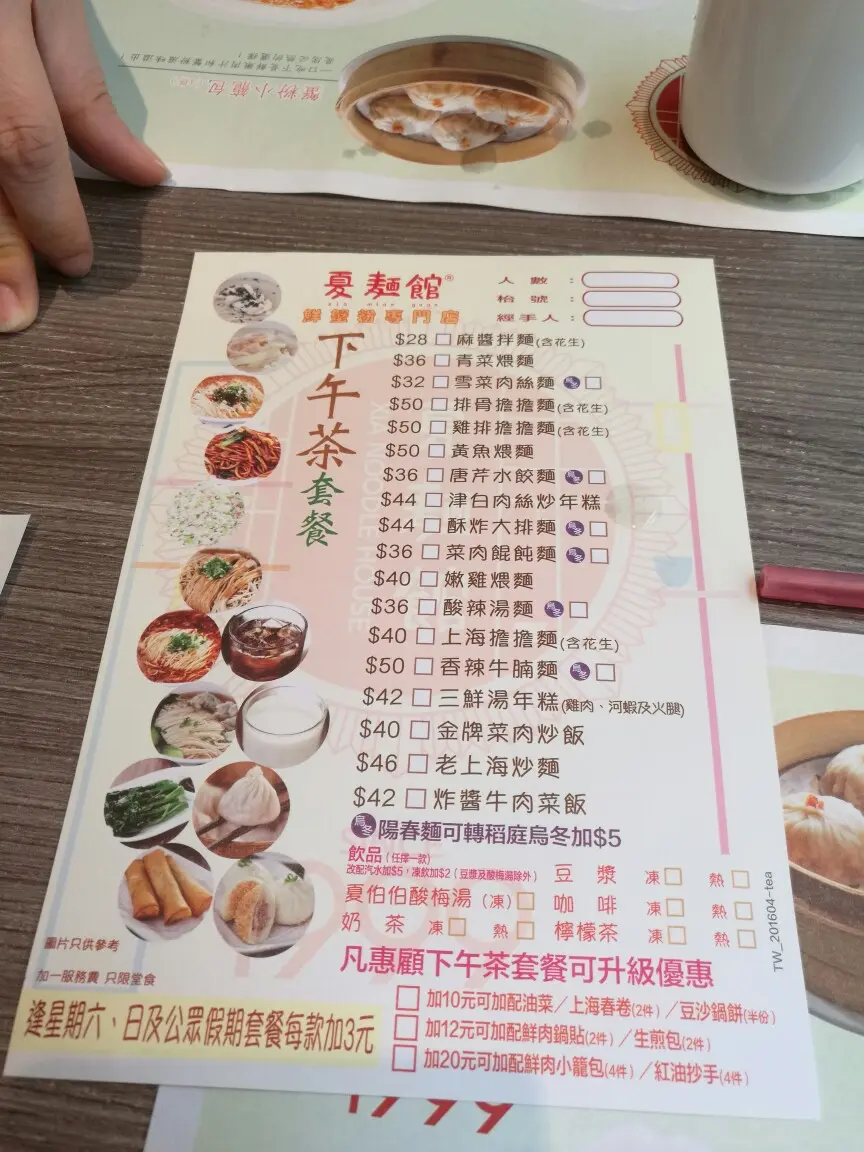 蟹粉小籠包
夏麵館®
xia mian guan
鮮蟹粉專門店
人數：
枱號：
經手人：
下午茶套餐
$28 □ 麻醬拌麵(含花生)
$36 □ 青菜煨麵
$32 □ 雪菜肉絲麵 烏冬 □
$50 □ 排骨擔擔麵(含花生)
$50 □ 雞排擔擔麵(含花生)
$50 □ 黃魚煨麵
$36 □ 唐芹水餃麵 烏冬 □
$44 □ 津白肉絲炒年糕
$44 □ 酥炸大排麵 烏冬 □
$36 □ 菜肉餛飩麵 烏冬 □
$40 □ 嫩雞煨麵
$36 □ 酸辣湯麵 烏冬 □
$40 □ 上海擔擔麵(含花生)
$50 □ 香辣牛腩麵 烏冬 □
$42 □ 三鮮湯年糕(雞肉、河蝦及火腿)
$40 □ 金牌菜肉炒飯
$46 □ 老上海炒麵
$42 □ 炸醬牛肉菜飯
烏冬 陽春麵可轉稻庭烏冬加$5
飲品(任擇一款)
改配汽水加$5，凍飲加$2(豆漿及酸梅湯除外)
豆漿 凍□ 熱□
夏伯伯酸梅湯(凍)□ 咖啡 凍□ 熱□
奶茶 凍□ 熱□ 檸檬茶 凍□ 熱□
TW_201604-tea
凡惠顧下午茶套餐可升級優惠
□ 加10元可加配油菜／上海春卷(2件)／豆沙鍋餅(半份)
□ 加12元可加配鮮肉鍋貼(2件)／生煎包(2件)
□ 加20元可加配鮮肉小籠包(4件)／紅油抄手(4件)
圖片只供參考
加一服務費 只限堂食
逢星期六、日及公眾假期套餐每款加3元
XIA NOODLE HOUSE
1999
1999